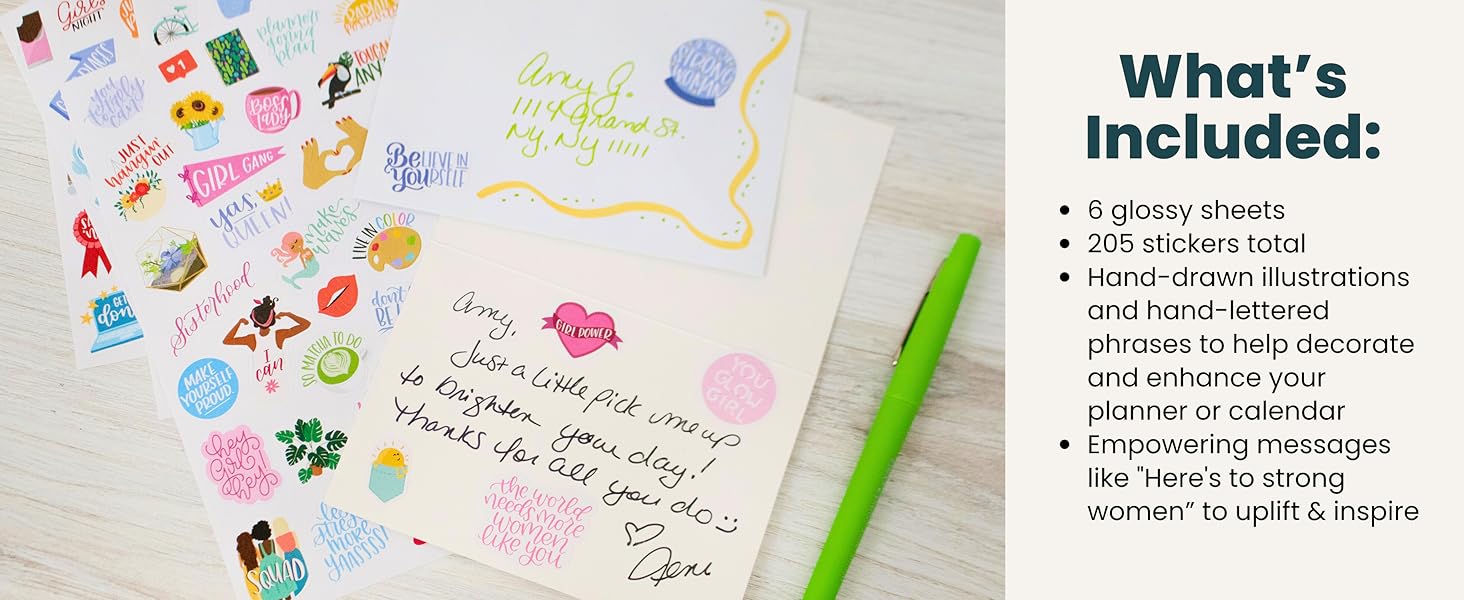 Girls
NIGHT
planner
gonna
plan
RADIATE
POSITIVITY
PLACES
1
TOUCAN
ANY
you
totally
can
BOSS
LADY
JUST
hangin'
OUT
GIRL GANG
yas,
QUEEN!
make
waves
LIVE IN COLOR
Sisterhood
don't
BE
I
can
SO MATCHA TO DO
MAKE
YOURSELF
PROUD.
GET
don
hey
girl
hey
less
stress
more
yaassss!
SQUAD
STRONG
WOMAN
Amy G.
1114 Grand St.
Ny, Ny 11111
BELIEVE IN
YOURSELF
Amy,
GIRL POWER
Just a little pick me up
to brighten your day!
Thanks for all you do
YOU
GLOW
GIRL
the world
needs more
women
like you
Jeni
What's
Included:
• 6 glossy sheets
• 205 stickers total
• Hand-drawn illustrations
and hand-lettered
phrases to help decorate
and enhance your
planner or calendar
• Empowering messages
like "Here's to strong
women” to uplift & inspire